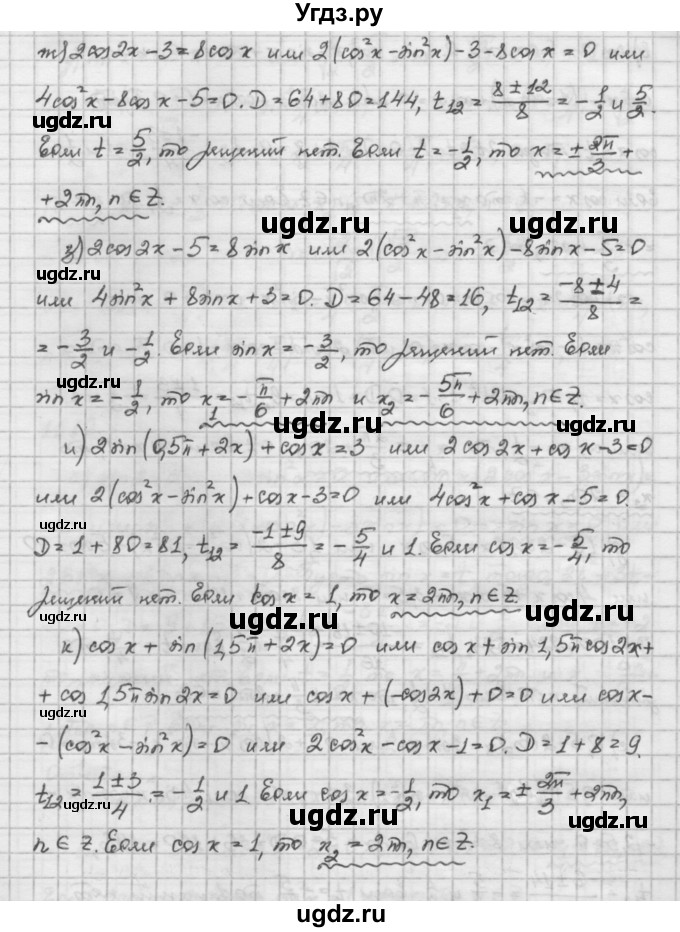 Угдз.ру
ж) 2cos2x − 3 = 8cosx или 2(cos²x − sin²x) − 3 − 8cosx = 0 или
4cos²x − 8cosx − 5 = 0. D = 64 + 80 = 144, t₁₂ = (8 ± 12)/8 = −1/2 и 5/2.
ugdz.ru
Если t = 5/2, то решений нет. Если t = −1/2, то x = ±2π/3 +
+ 2πn, n ∈ Z.
ugdz.ru ugdz.ru
з) 2cos2x − 5 = 8sinx или 2(cos²x − sin²x) − 8sinx − 5 = 0
или 4sin²x + 8sinx + 3 = 0. D = 64 − 48 = 16, t₁₂ = (−8 ± 4)/8 =
ugdz.ru
= −3/2 и −1/2. Если sinx = −3/2, то решений нет. Если
ugdz.ru
sinx = −1/2, то x₁ = −π/6 + 2πn и x₂ = −5π/6 + 2πn, n ∈ Z.
ugdz.ru ugdz.ru
и) 2sin(0,5π + 2x) + cosx = 3 или 2cos2x + cosx − 3 = 0
или 2(cos²x − sin²x) + cosx − 3 = 0 или 4cos²x + cosx − 5 = 0.
ugdz.ru
D = 1 + 80 = 81, t₁₂ = (−1 ± 9)/8 = −5/4 и 1. Если cosx = −5/4, то
ugdz.ru
решений нет. Если cosx = 1, то x = 2πn, n ∈ Z.
ugdz.ru ugdz.ru
к) cosx + sin(1,5π + 2x) = 0 или cosx + sin1,5πcos2x +
+ cos1,5πsin2x = 0 или cosx + (−cos2x) + 0 = 0 или cosx −
ugdz.ru
− (cos²x − sin²x) = 0 или 2cos²x − cosx − 1 = 0. D = 1 + 8 = 9.
ugdz.ru
t₁₂ = (1 ± 3)/4 = −1/2 и 1 Если cosx = −1/2, то x₁ = ±2π/3 + 2πn,
ugdz.ru
n ∈ Z. Если cosx = 1, то x₂ = 2πn, n ∈ Z.
ugdz.ru ugdz.ru
ugdz.ru